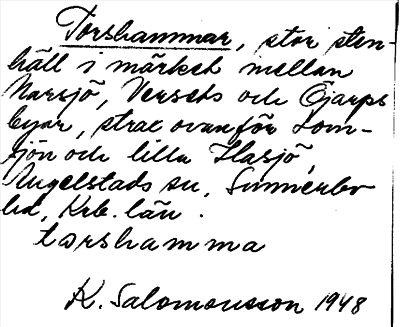 Torshammar, stor sten-
häll i märket mellan
Narsjö, Versets och Ojarps
byar, strax ovanför Lom-
sjön och lilla Hasjö,
Angelstads sn, Sunnerbo
hd, Krb. län.
torshamma
K. Salomonsson 1948